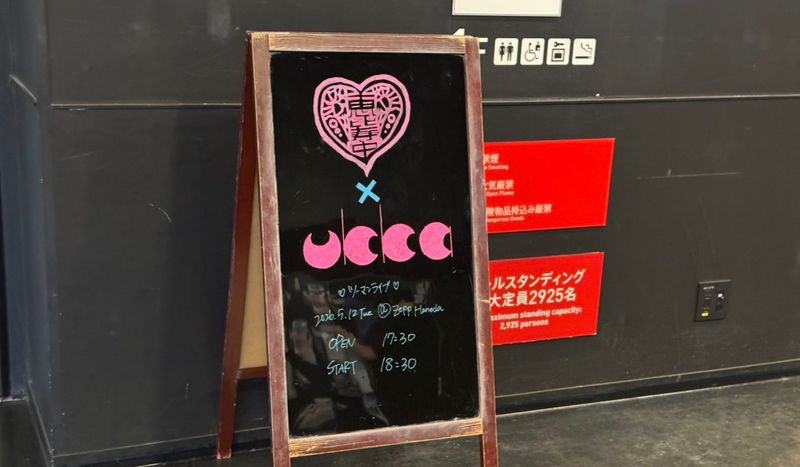 恵比寿中
×
ucca
♡ツーマンライブ♡
2026.5.12 Tue @ Zepp Haneda
OPEN 17:30
START 18:30
禁煙
No Smoking
火気厳禁
Open Flame
険物品持込み厳禁
Dangerous Goods
ールスタンディング
大定員2925名
aximum standing capacity:
2,925 persons